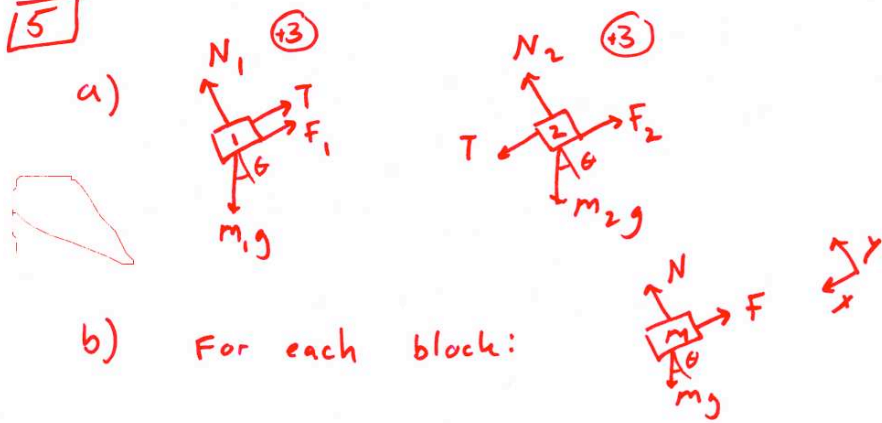 5
+3 +3
a) N₁ T F₁ 1 θ m₁g N₂ T F₂ 2 θ m₂g
b) For each block: N F m θ mg y x